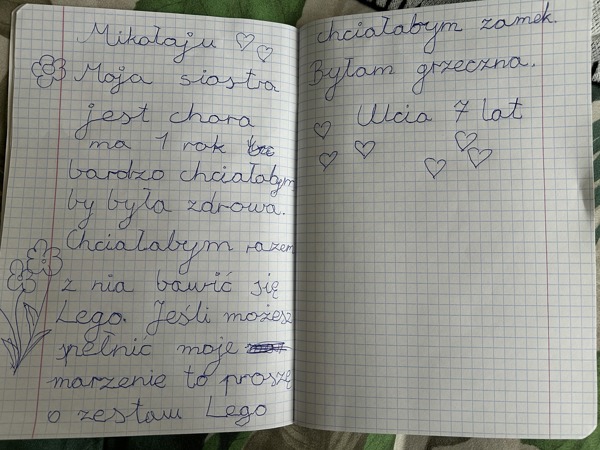 Mikołaju
Moja siostra
jest chora
ma 1 rok
bardzo chciałabym
by była zdrowa.
Chciałabym razem
z nia bawić się
Lego. Jeśli możesz
spełnić moje
marzenie to proszę
o zestaw Lego
chciałabym zamek.
Byłam grzeczna.
Ulcia 7 lat